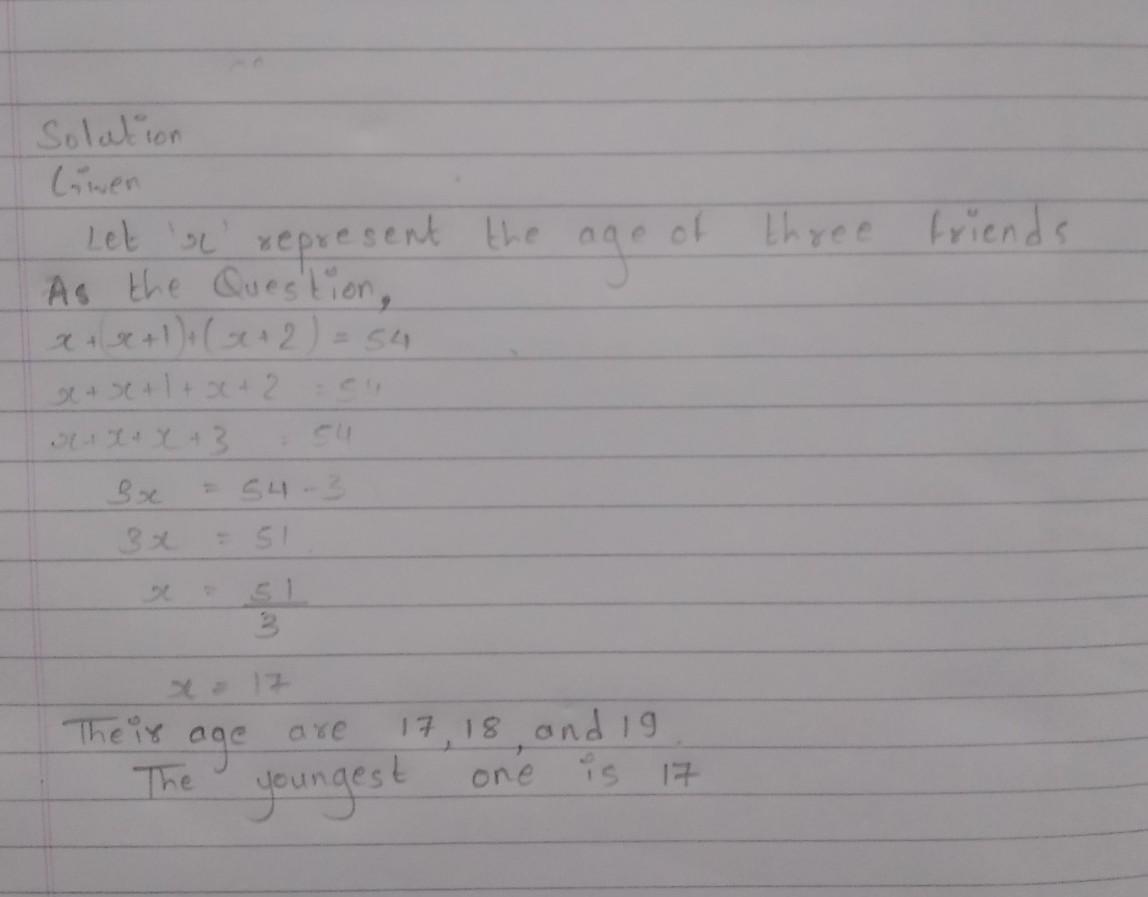 Solution
Given
Let 'x' represent the age of three friends
As the Question,
x+(x+1)+(x+2) = 54
x+x+1+x+2 = 54
x+x+x+3 = 54
3x = 54-3
3x = 51
x = 51
3
x = 17
Their age are 17, 18, and 19.
The youngest one is 17